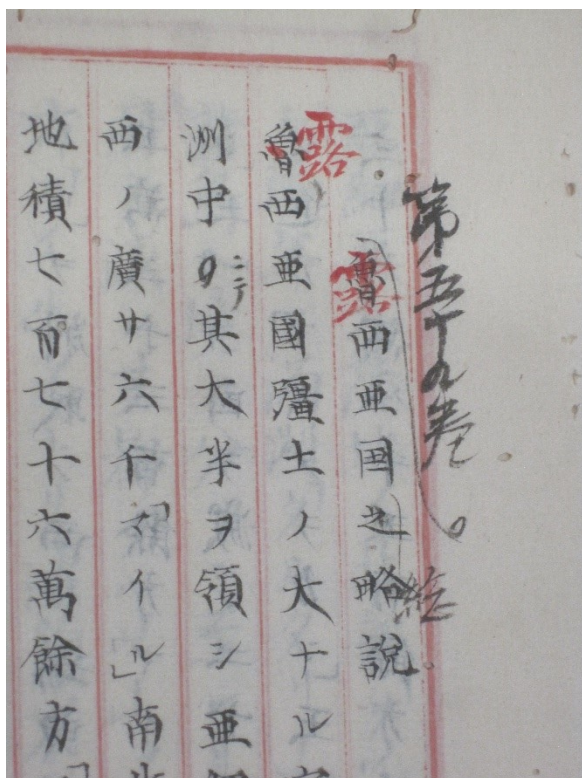 第五十九巻
露
魯西亜国之略説
総
露
魯西亜國彊土ノ大ナル
洲中ノ其大半ヲ領シ亜
ニテ
西ノ廣サ六千「マイル」南
地積七百七十六萬餘方